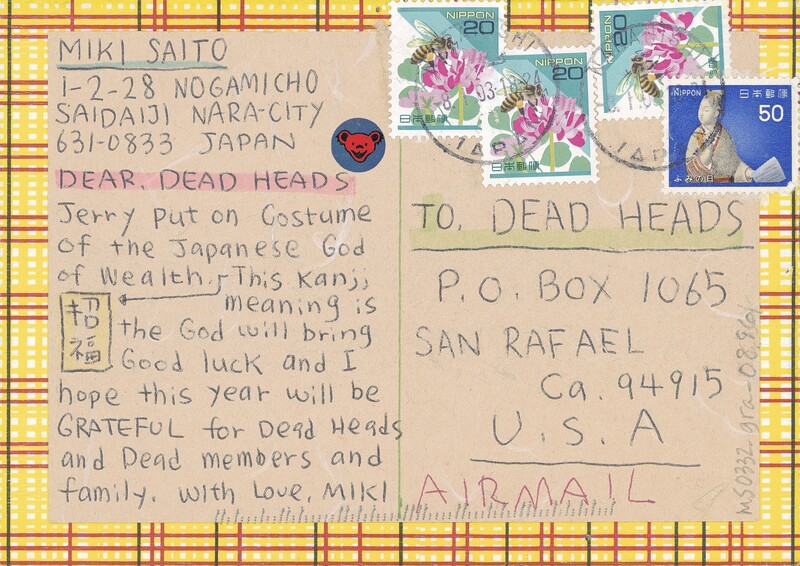 MIKI SAITO
1-2-28 NOGAMICHO
SAIDAIJI NARA-CITY
631-0833 JAPAN
DEAR, DEAD HEADS
Jerry put on Costume
of the Japanese God
of Wealth. This Kanji
meaning is
招福
the God will bring
Good luck and I
hope this year will be
GRATEFUL for Dead Heads
and Dead members and
family. With Love, MIKI
NIPPON
20
日本郵便
NIPPON
20
日本郵便
NIPPON
20
NIPPON 日本郵便
50
ふみの日
JAPAN
JAPAN
TO, DEAD HEADS
P.O. BOX 1065
SAN RAFAEL
Ca. 94915
U.S.A
AIRMAIL